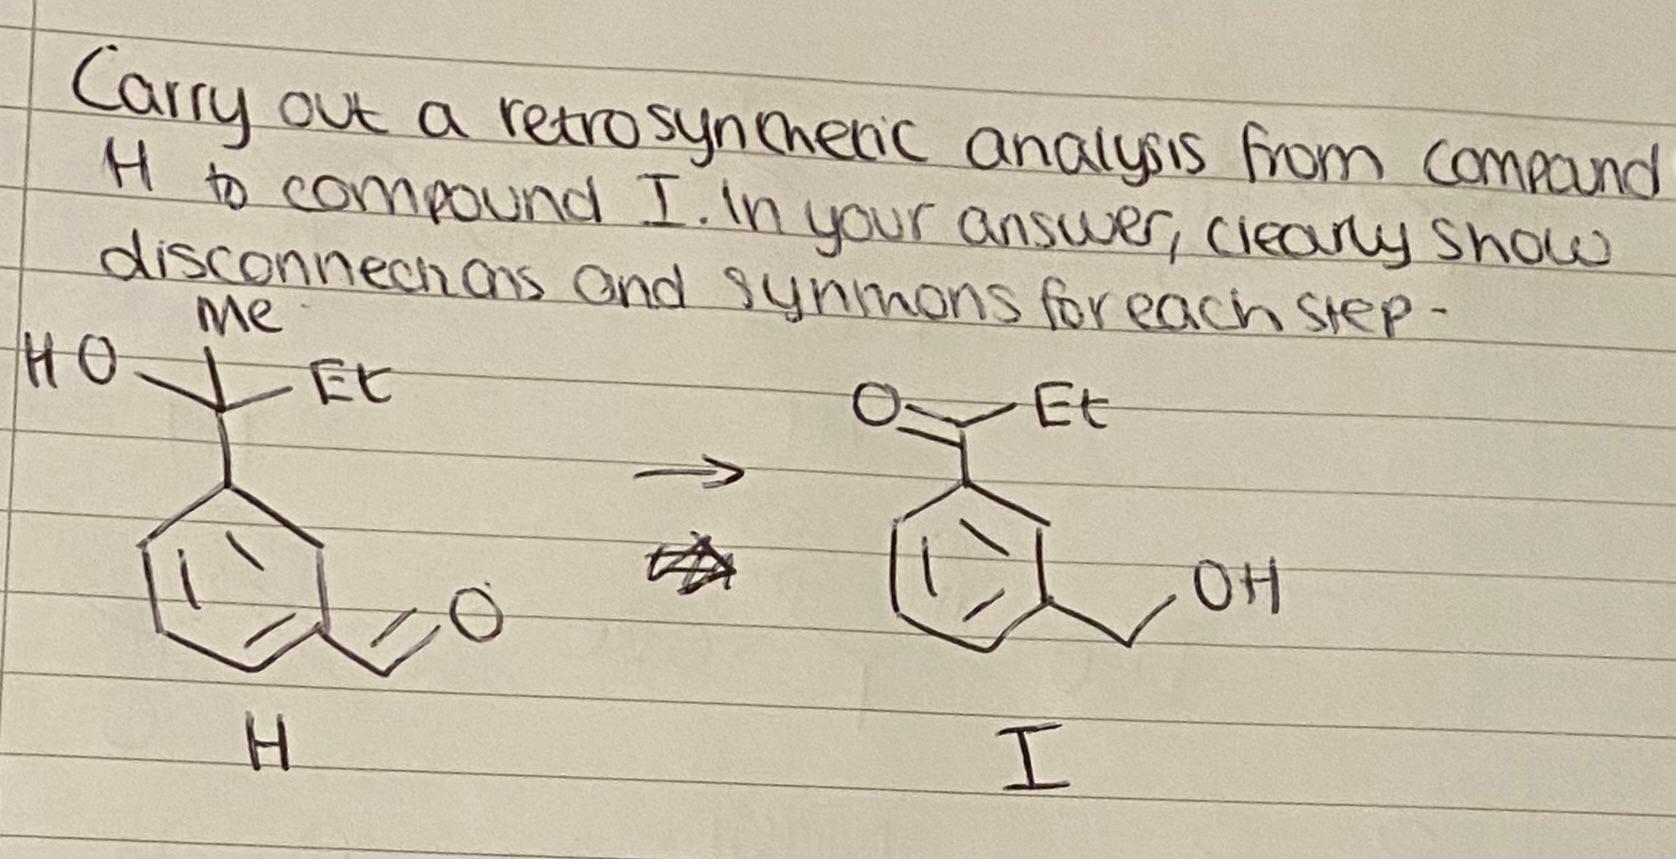 Carry out a retrosynthetic analysis from compound
H to compound I. In your answer, clearly show
disconnections and synthons for each step.
Me
HO
Et
O
Et
O
OH
H
I